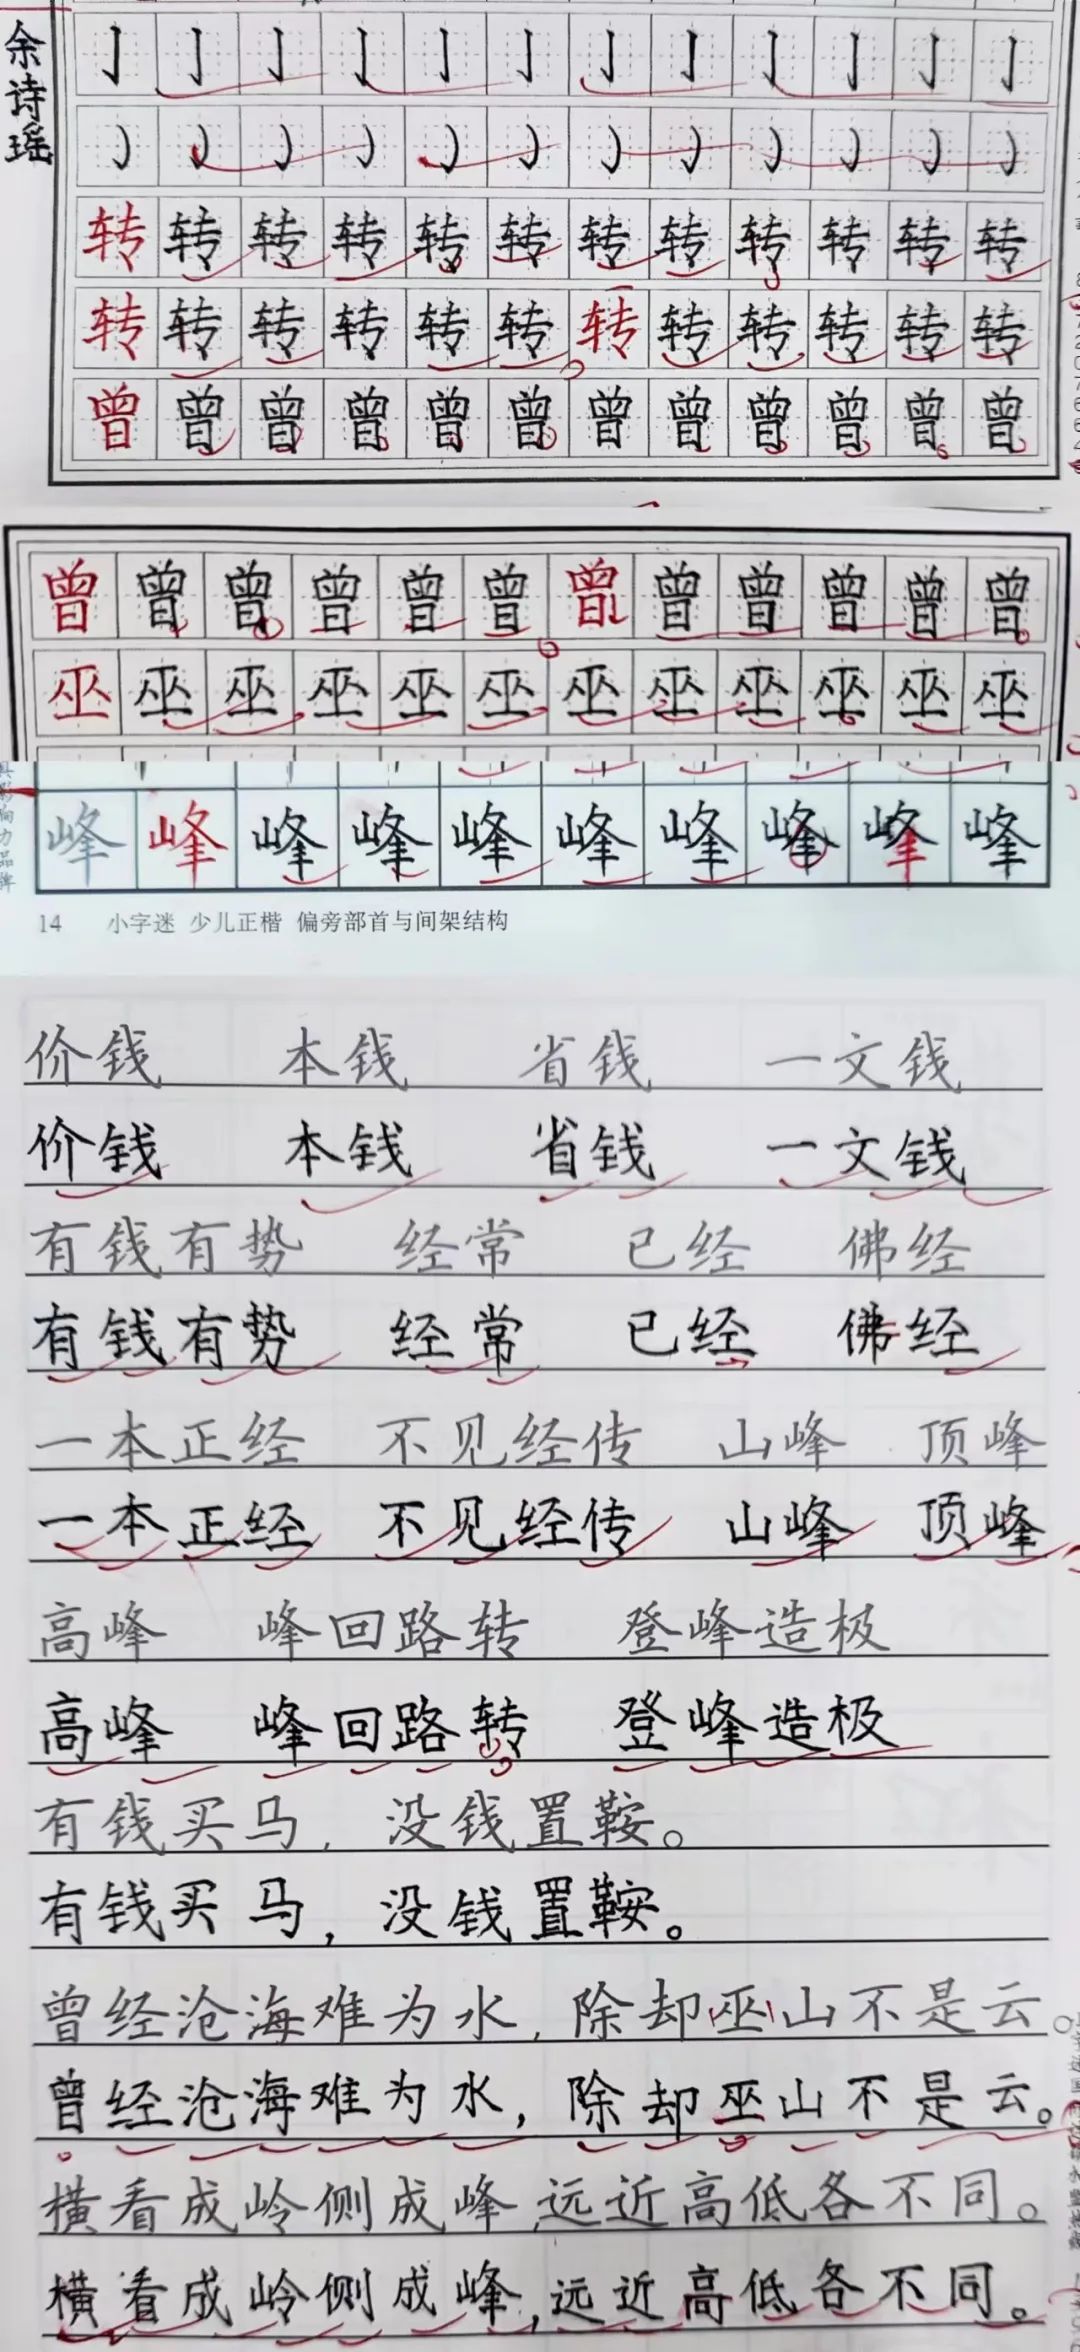 余诗瑶
亅 亅 亅 亅 亅 亅 亅 亅 亅 亅 亅 亅
转 转 转 转 转 转 转 转 转 转 转 转
转 转 转 转 转 转 转 转 转 转 转 转
曾 曾 曾 曾 曾 曾 曾 曾 曾 曾 曾 曾
曾 曾 曾 曾 曾 曾 曾 曾 曾 曾 曾 曾
巫 巫 巫 巫 巫 巫 巫 巫 巫 巫 巫 巫
影响力品牌
峰 峰 峰 峰 峰 峰 峰 峰 峰 峰
14 小字迷 少儿正楷 偏旁部首与间架结构
价钱 本钱 省钱 一文钱
价钱 本钱 省钱 一文钱
有钱有势 经常 已经 佛经
有钱有势 经常 已经 佛经
一本正经 不见经传 山峰 顶峰
一本正经 不见经传 山峰 顶峰
高峰 峰回路转 登峰造极
高峰 峰回路转 登峰造极
有钱买马，没钱置鞍。
有钱买马，没钱置鞍。
曾经沧海难为水，除却巫山不是云。
曾经沧海难为水，除却巫山不是云。
横看成岭侧成峰，远近高低各不同。
横看成岭侧成峰，远近高低各不同。